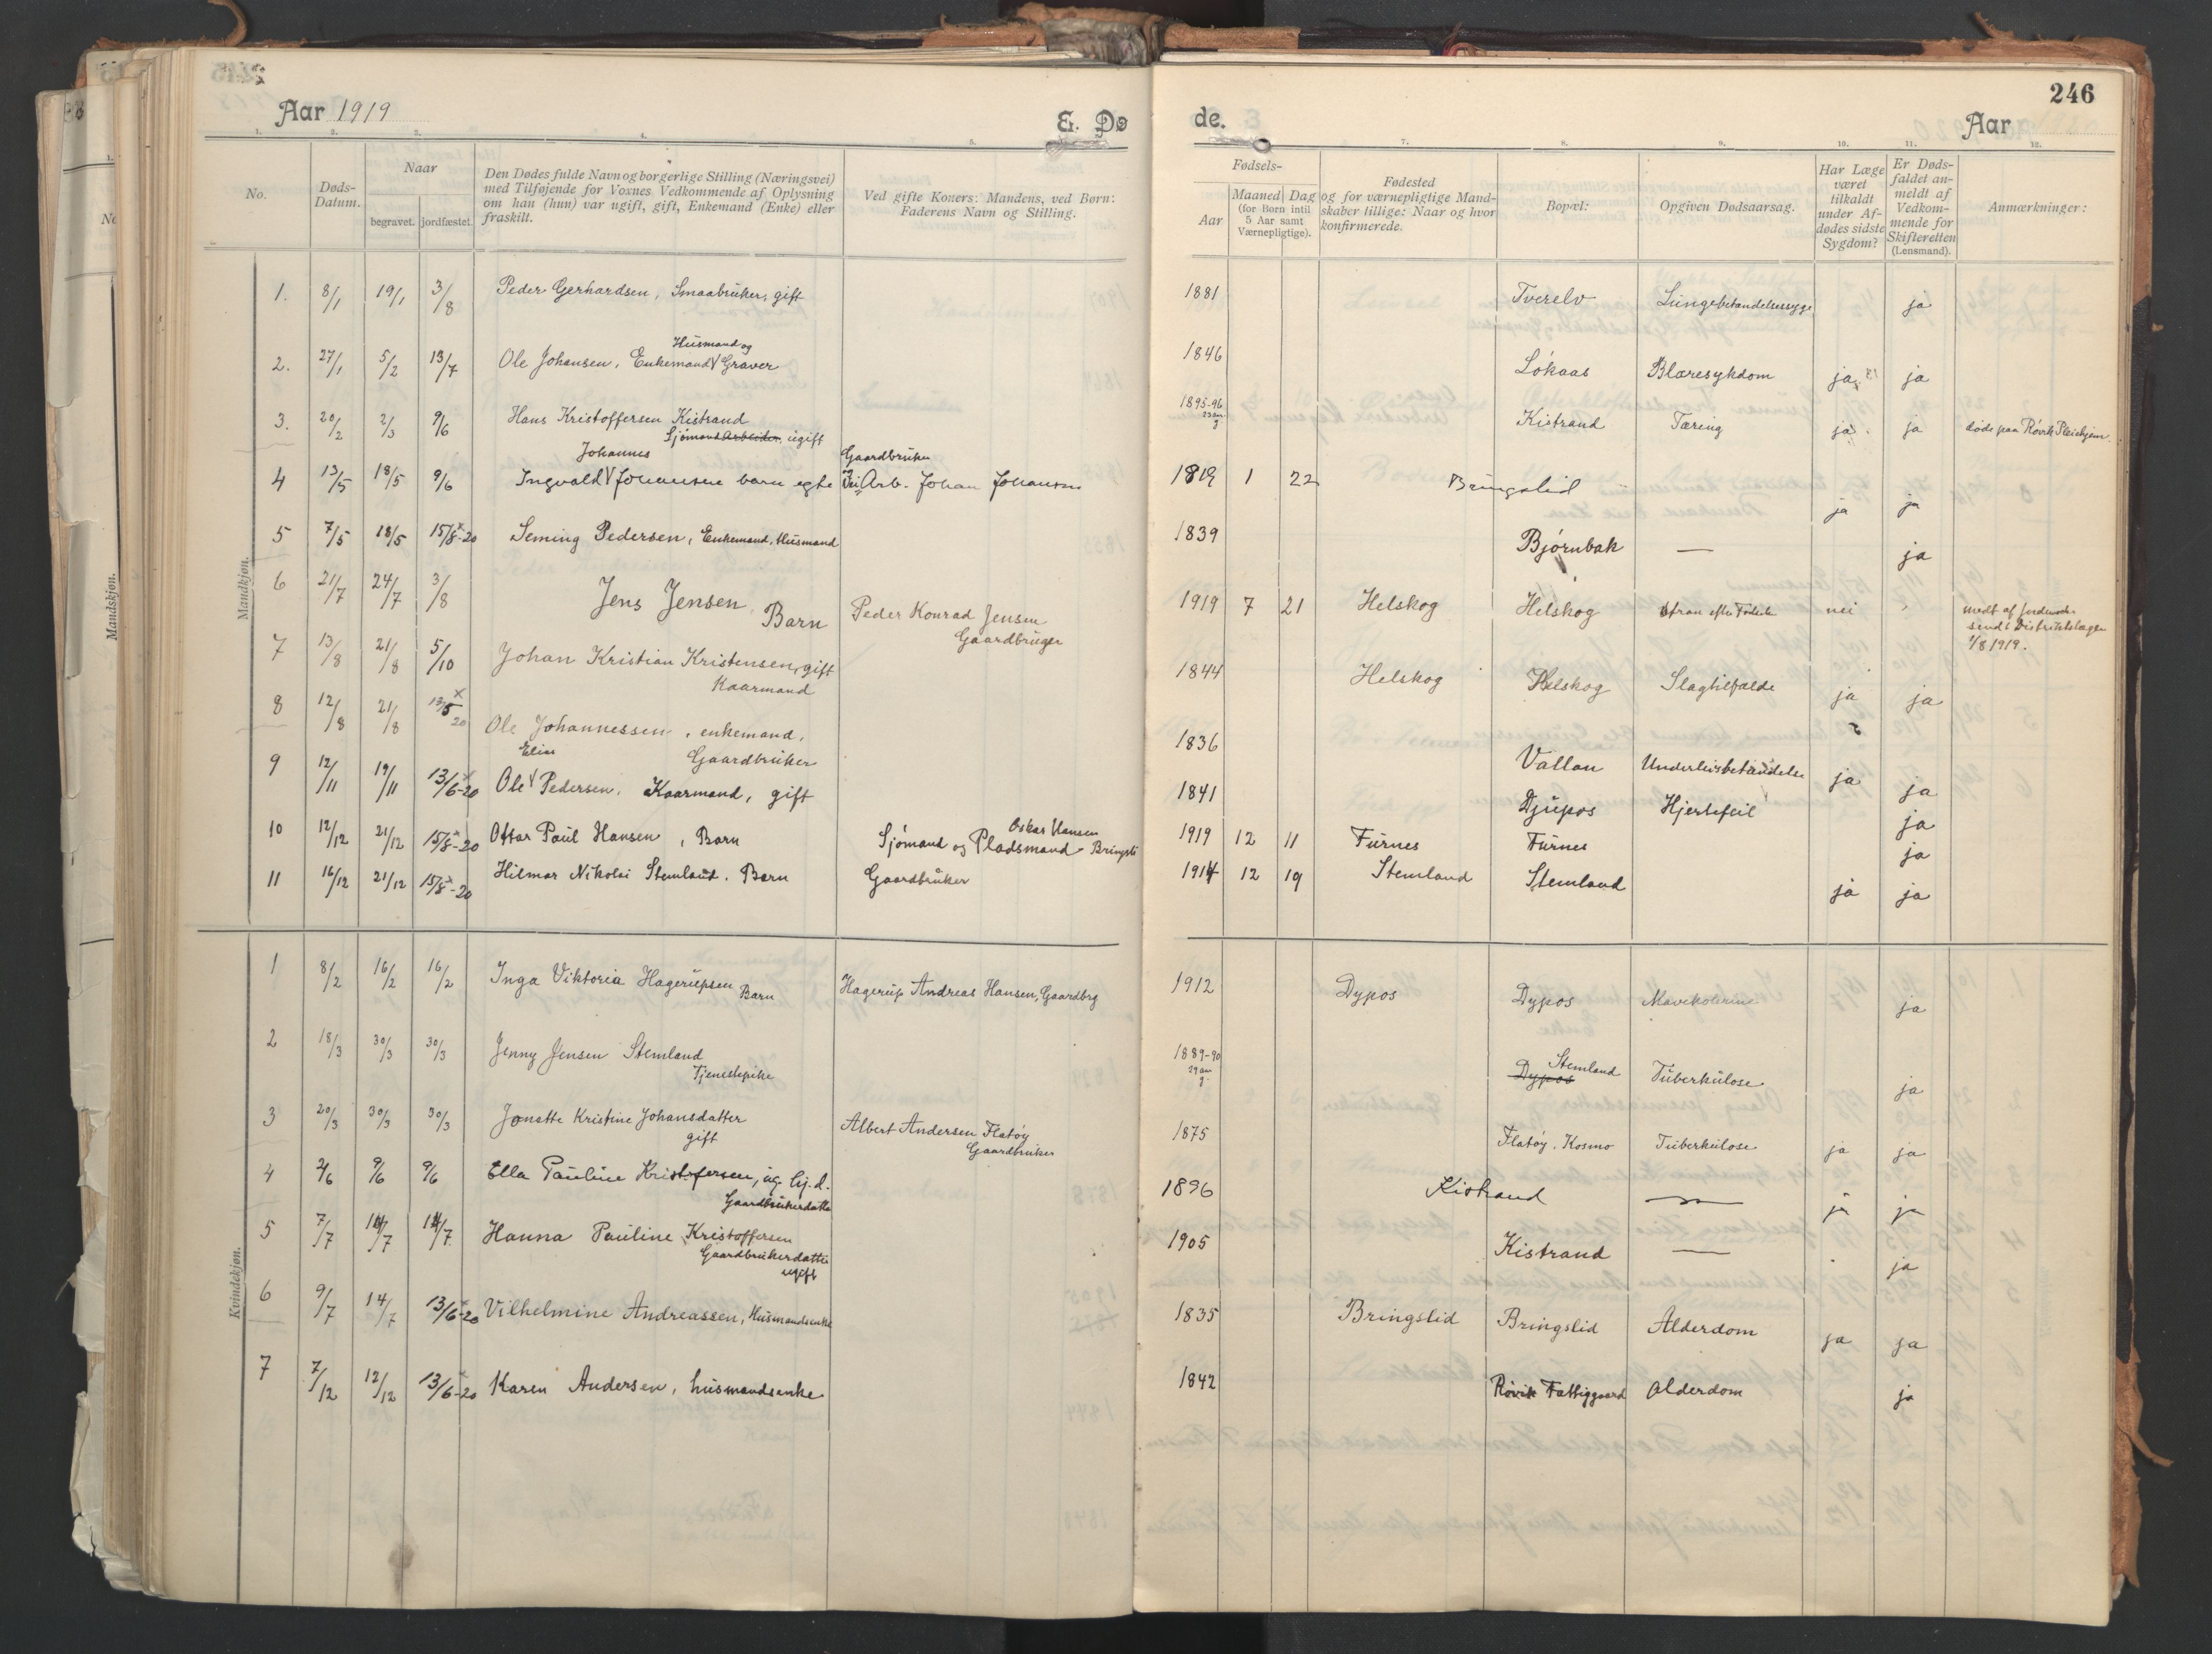 246
Aar 1919
E. Dø
de.
Aar
1. 2. 3. 4. 5.
7. 8. 9. 10. 11. 12.
No.
Døds-
Datum.
Naar
begravet. jordfæstet.
Den Dødes fulde Navn og borgerlige Stilling (Næringsvei)
med Tilføjende for Voxnes Vedkommende af Oplysning
om han (hun) var ugift, gift, Enkemand (Enke) eller
fraskilt.
Ved gifte Koners: Mandens, ved Børn:
Faderens Navn og Stilling.
Fødsels-
Aar
Maaned Dag
(for Børn intil
5 Aar samt
Værnepligtige).
Fødested
og for værnepligtige Mand-
skaber tillige: Naar og hvor
konfirmerede.
Bopæl:
Opgiven Dødsaarsag.
Har Læge
været
tilkaldt
under Af-
dødes sidste
Sygdom?
Er Døds-
faldet an-
meldt af
Vedkom-
mende for
Skifteretten
(Lensmand).
Anmærkninger:
Mandkjøn.
1. 8/1 19/1 3/8 Peder Gerhardsen, Smaabruker, gift 1881 Tverelv Lungebetændelsessyge ja
Husmand og
2. 27/1 5/2 13/7 Ole Johansen, Enkemand Graver 1846 Løkaas Blæresykdom ja ja
3. 20/2 2/3 9/6 Hans Kristoffersen Kistrand 1895-96 Kistrand Tæring ja ja døde paa Røvik Pleiehjem
Sjømand Arbeider, ugift
Johannes Gaardbruker
4 13/5 18/5 9/6 Ingvald Johansen barn egte Arb. Johan Johansen 1919 1 22 Bringslid ja ja
5 7/5 18/5 15/8-20 Seming Pedersen, Enkemand, Husmand 1839 Bjørnbak — ja
6 21/7 24/7 3/8 Jens Jensen, Barn Peder Konrad Jensen Gaardbruger 1919 7 21 Helskog Helskog nei
sendt Distriktslægen
1/8 1919.
7 13/8 21/8 5/10 Johan Kristian Kristensen, gift 1844 Helskog Helskog Slagtilfælde ja ja
Kaarmand
8 12/8 21/8 Ole Johannessen, enkemand, 1836 Vallan Underlivsbetændelse ja ja
Gaardbruker
Elias
9 12/11 19/11 13/6-20 Ole Pedersen, Kaarmand, gift 1841 Djupos Hjertefeil ja
Oskar Hansen
10 12/12 21/12 15/8-20 Ottar Paul Hansen, Barn Sjømand og Pladsmand 1919 12 11 Furnes Furnes ja
11 16/12 21/12 15/8-20 Hilmar Nikolai Stemland. Barn Gaardbruker 1914 12 19 Stemland Stemland ja ja
Kvindekjøn.
1 8/2 16/2 16/2 Inga Viktoria Hagerupsen Barn Hagerup Andreas Hansen, Gaardbrg 1912 Dypos Dypos Mavekolerine ja
2 18/3 30/3 30/3 Jenny Jensen Stemland 1889-90 Dypos Stemland Tuberkulose ja
Tjenestepike
3 20/3 30/3 30/3 Jonette Kristine Johansdatter Albert Andersen Flatøy 1875 Flatøy. Kosmo Tuberkulose ja ja
gift Gaardbruker
4 2/6 9/6 9/6 Ella Pauline Kristofersen, ug. 1896 Kistrand — ja ja
Gaardbrukerdatter
5 7/7 14/7 14/7 Hanna Pauline Kristoffersen 1905 Kistrand — ja
Gaardbrukerdatter
ugift
6 9/7 14/7 13/6-20 Vilhelmine Andreassen, Husmandsenke 1835 Bringslid Bringslid Alderdom ja ja
7 7/12 12/12 13/6-20 Karen Andersen, husmandsenke 1842 Røvik Fattiggaard Alderdom ja